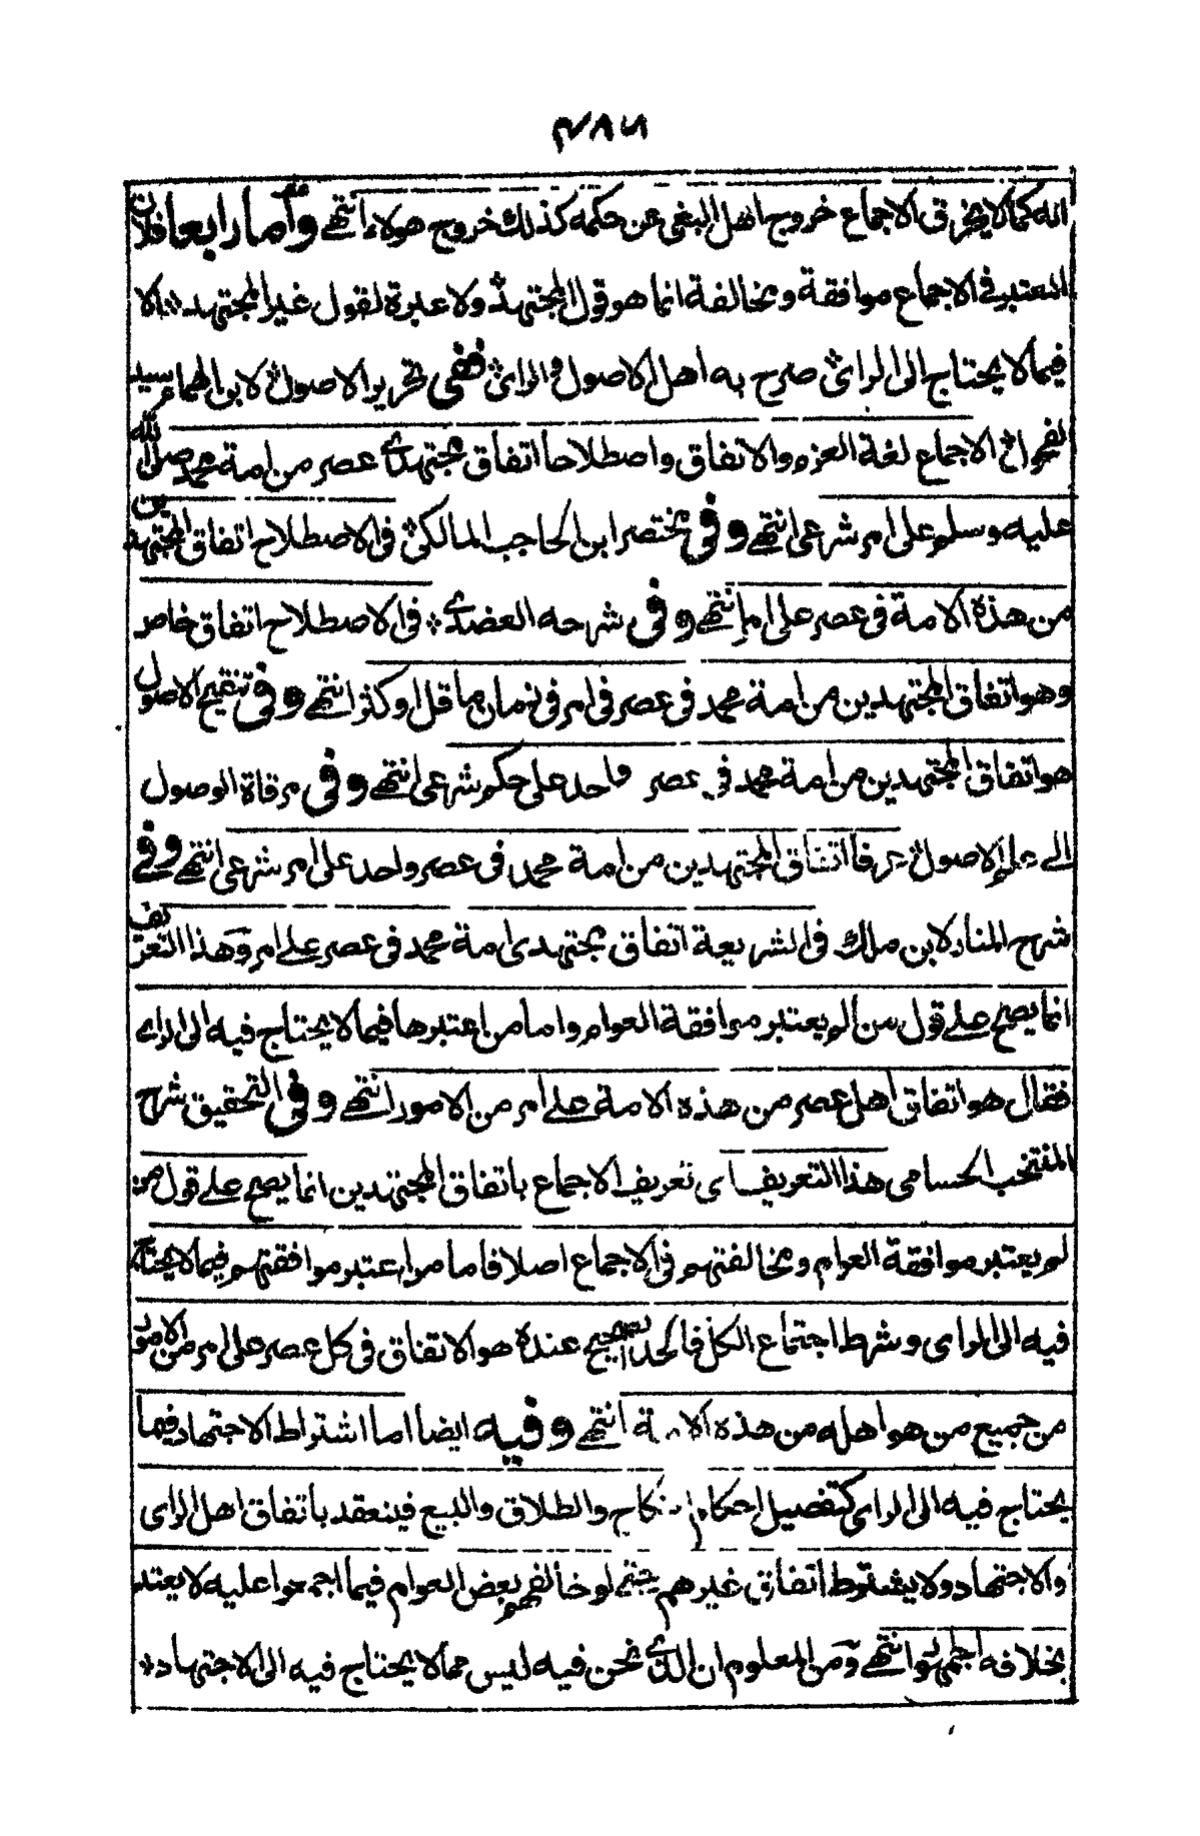 ٤٨٦
انه كما لا يخرق الاجماع خروج اهل البغي عن حكمه كذلك خروج هولاء انتهے واما رابعا فلان
المعتبر في الاجماع موافقة ومخالفة انما هو قول المجتهد ولا عبرة لقول غير المجتهد الا
فيما لا يحتاج الى الراى صرح به اهل الاصول والراى ففي تحرير الاصول لابن الهمام سيد
الفحول الاجماع لغة العزم والاتفاق واصطلاحا اتفاق مجتهدى عصر من امة محمد صلى الله
عليه وسلم على امر شرعى انتهے وفى مختصر ابن الحاجب المالكى فى الاصطلاح اتفاق المجتهدين
من هذه الامة فى عصر على امر انتهے وفى شرحه العضدى فى الاصطلاح اتفاق خاص
وهو اتفاق المجتهدين من امة محمد فى عصر فى امر فى زمان ما قل او كثر انتهے وفى تنقيح الاصول
هو اتفاق المجتهدين من امة محمد فى عصر واحد على حكم شرعى انتهے وفى مرقاة الوصول
الے علم الاصول عرفا اتفاق المجتهدين من امة محمد فى عصر واحد على امر شرعى انتهے وفے
شرح المنار لابن ملك فى الشريعة اتفاق مجتهدى امة محمد فى عصر علے امر وهذا التعريف
انما يصح علے قول من لم يعتبر موافقة العوام واما من اعتبرها فيما لا يحتاج فيه الى الراے
فقال هو اتفاق اهل عصر من هذه الامة علے امر من الامور انتهے وفى التحقيق شرح
المنتخب الحسامى هذا التعريف اى تعريف الاجماع باتفاق المجتهدين انما يصح علے قول من
لم يعتبر موافقة العوام ومخالفتهم فى الاجماع اصلا فاما من اعتبر موافقتهم فيما لا يحتاج
فيه الى الراى وشرط اجتماع الكل فالحد الصحيح عنده هو الاتفاق فى كل عصر على امر من الامور
من جميع من هو اهله من هذه الامة انتهے وفيه ايضا اما اشتراط الاجتهاد فيما
يحتاج فيه الى الراى كتفصيل احكام النكاح والطلاق والبيع فينعقد باتفاق اهل الراى
والاجتهاد ولا يشترط اتفاق غيرهم حتے لو خالفهم بعض العوام فيما اجمعوا عليه لا يعتد
بخلافه انتهے ومن المعلوم ان الذى نحن فيه ليس مما لا يحتاج فيه الى الاجتهاد